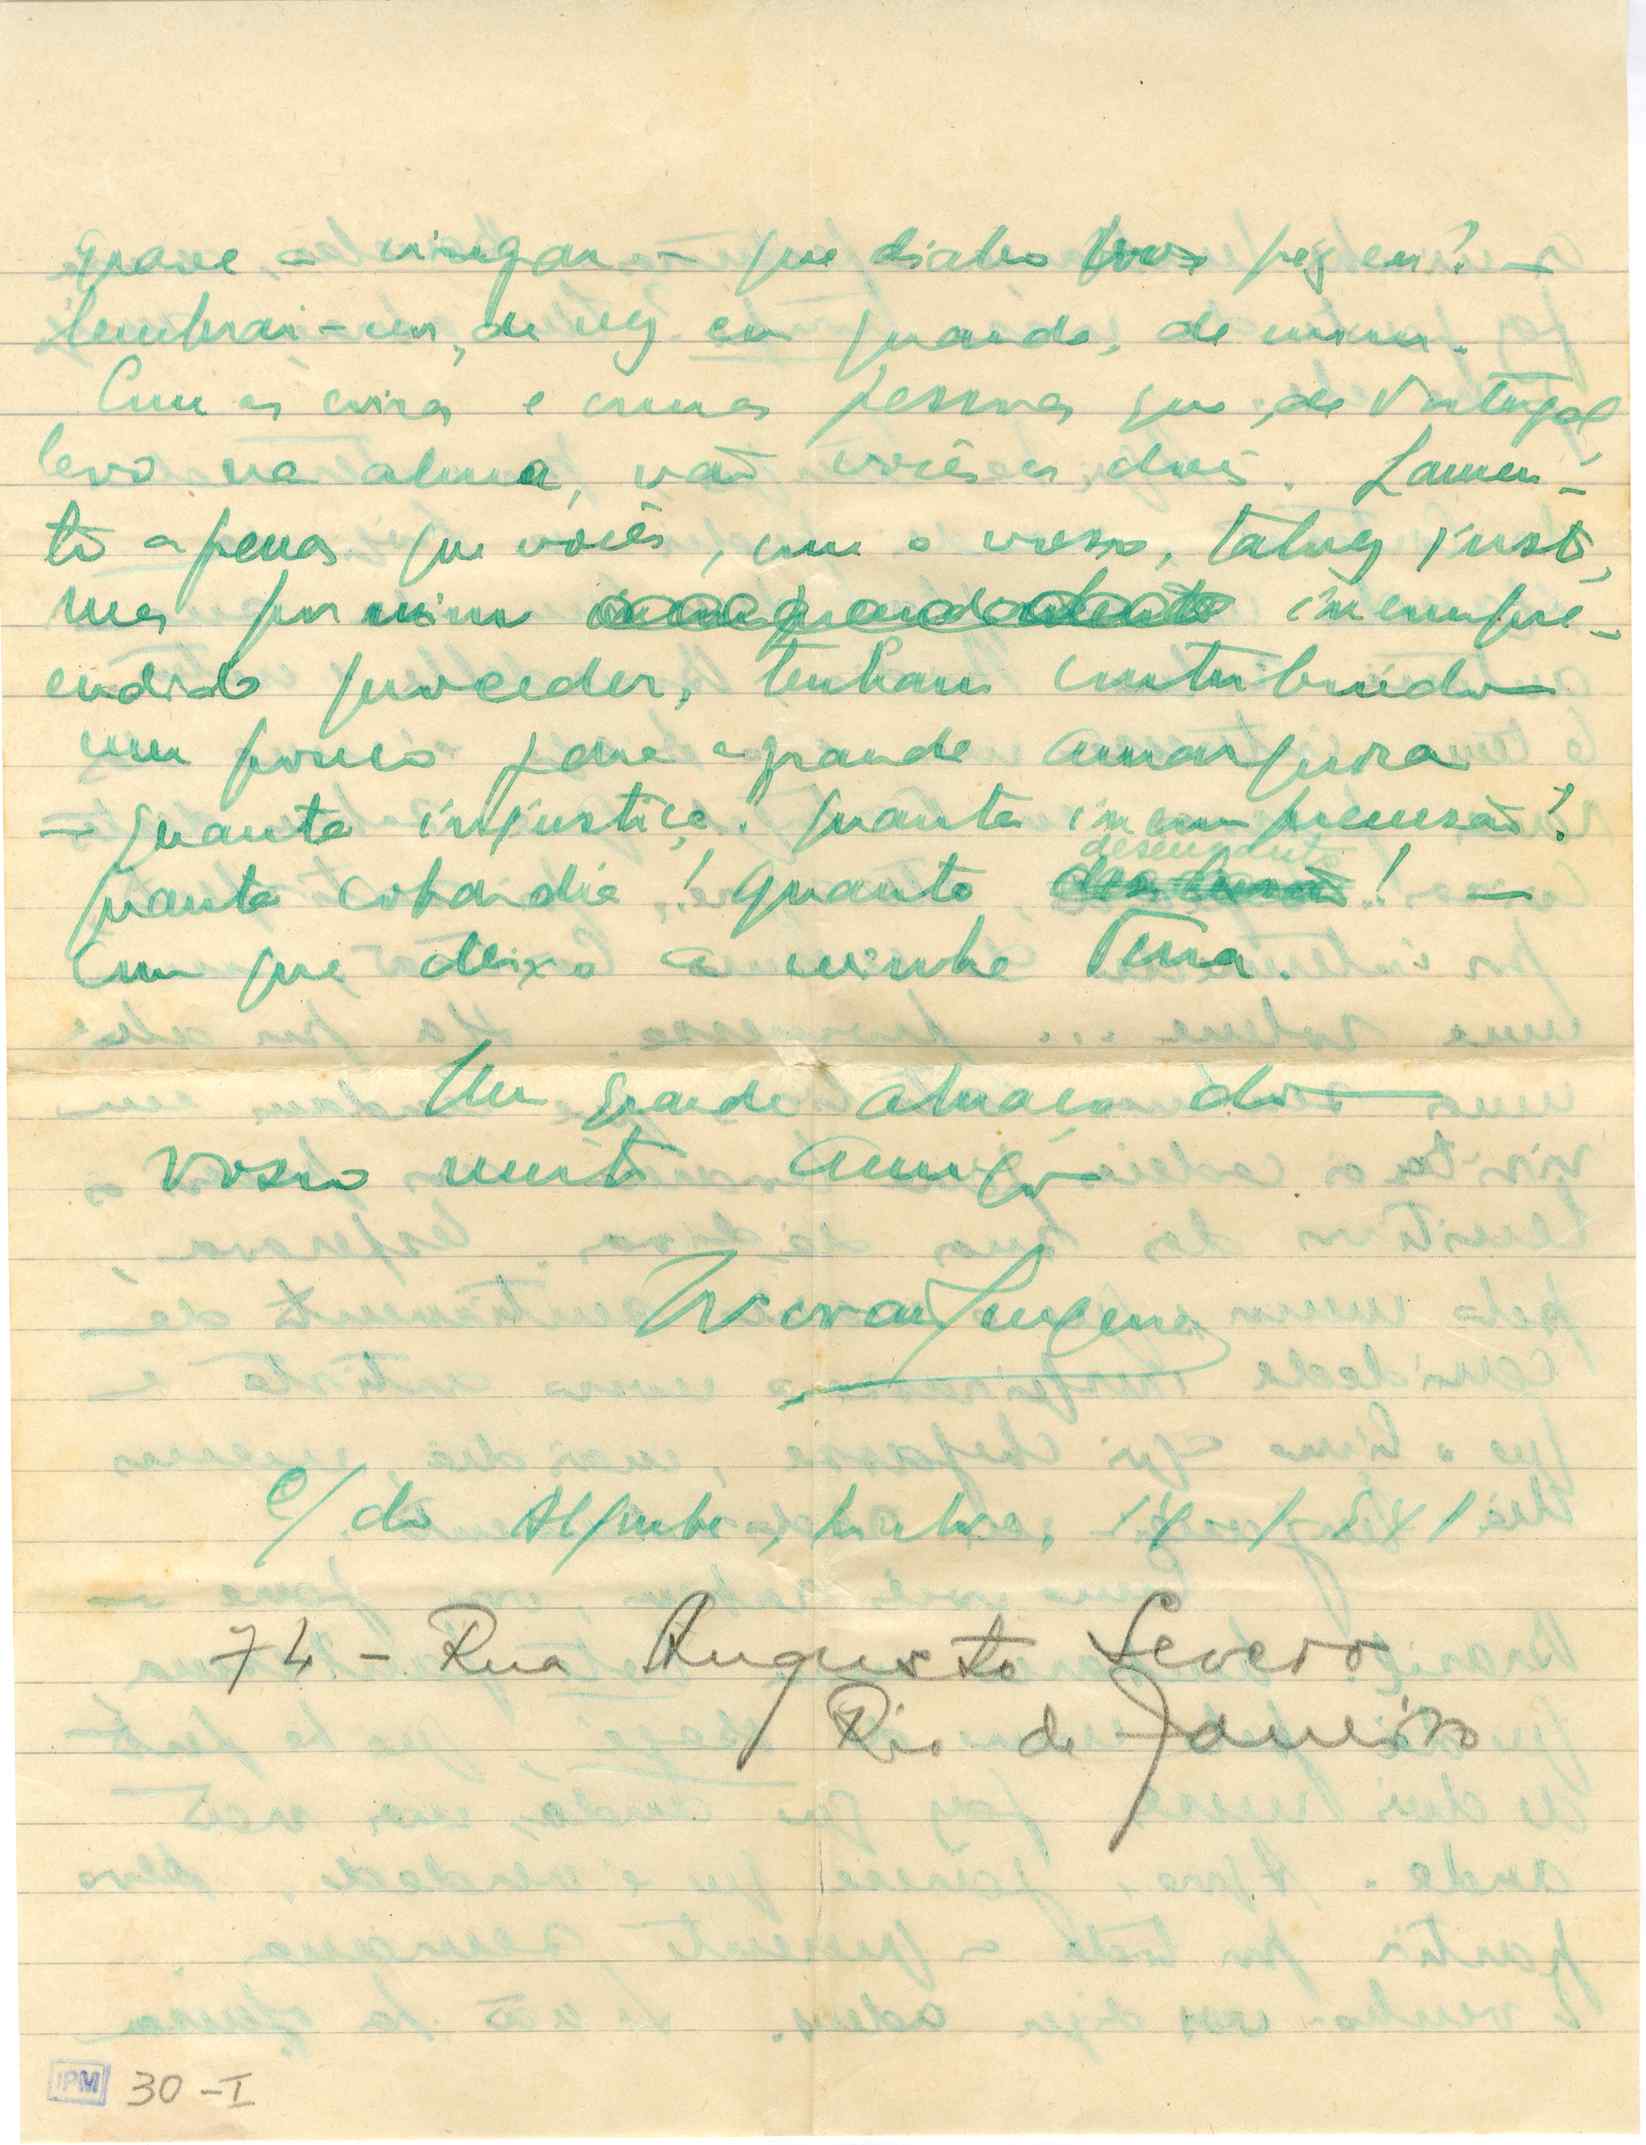 grave a vingar – que diabo vos fiz eu? –
lembrai-vos, de vez em quando, de mim.
Com as coisas e com as pessoas que, de Portugal,
levo na alma, vão vocês os dois. Lamen-
to apenas que vocês, com o vosso, talvez justo,
mas por mim incompre-
endido proceder, tenham contribuído
um pouco para a grande amargura
– quanta injustiça! quanta incompreensão!
quanta cobardia! quanto desencanto! –
com que deixo a minha Terra.
Um grande abraço do
vosso muito amigo
C/ do Aljube, Lisboa,
74 – Rua Augusto Severo
Rio de Janeiro
IPM 30 – I